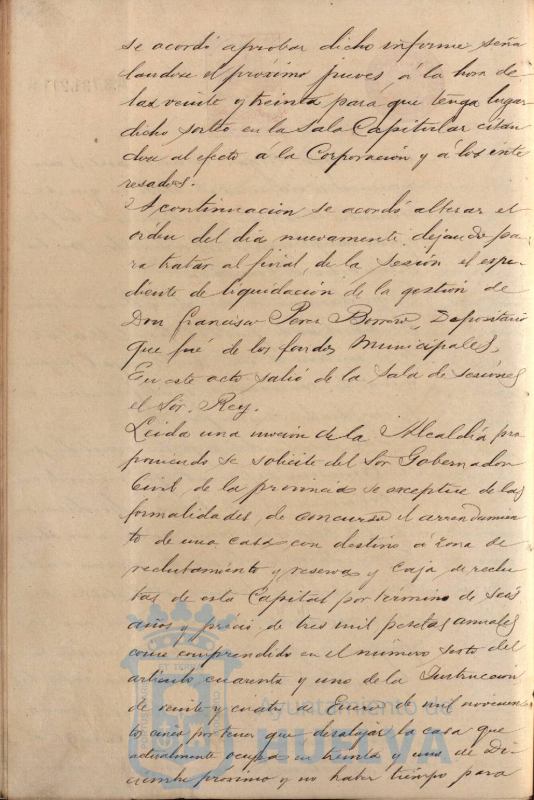 se acordó aprobar dicho informe seña
landose el próximo jueves, á la hora de
las veinte y treinta para que tenga lugar
dicho sorteo en la Sala Capitular citan
dose al efecto á la Corporación y á los inte
resados.
A continuación se acordó alterar el
órden del día nuevamente, dejando pa
ra tratar al final de la sesión el espe
diente de liquidación de la gestión de
Don Francisco Perez Borrero, Depositario
que fué de los fondos Municipales.
En este acto salió de la Sala de sesiones
el Sör. Rey.
Leida una moción de la Alcaldía pro
poniendo se solicite del Sör Gobernador
Civil de la provincia se exceptue de las
formalidades de concurso el arrendamien
to de una casa con destino á zona de
reclutamiento y reserva y Caja de reclu
tas de esta Capital por termino de seis
años y precio de tres mil pesetas anuales
como comprendido en el número sesto del
artículo cuarenta y uno de la Instrucción
de veinte y cuatro de Enero de mil novecien
tos cinco por tener que desalojar la casa que
actualmente ocupa en treinta y uno de Di
ciembre proximo y no haber tiempo para
Ayuntamiento de
HUELVA